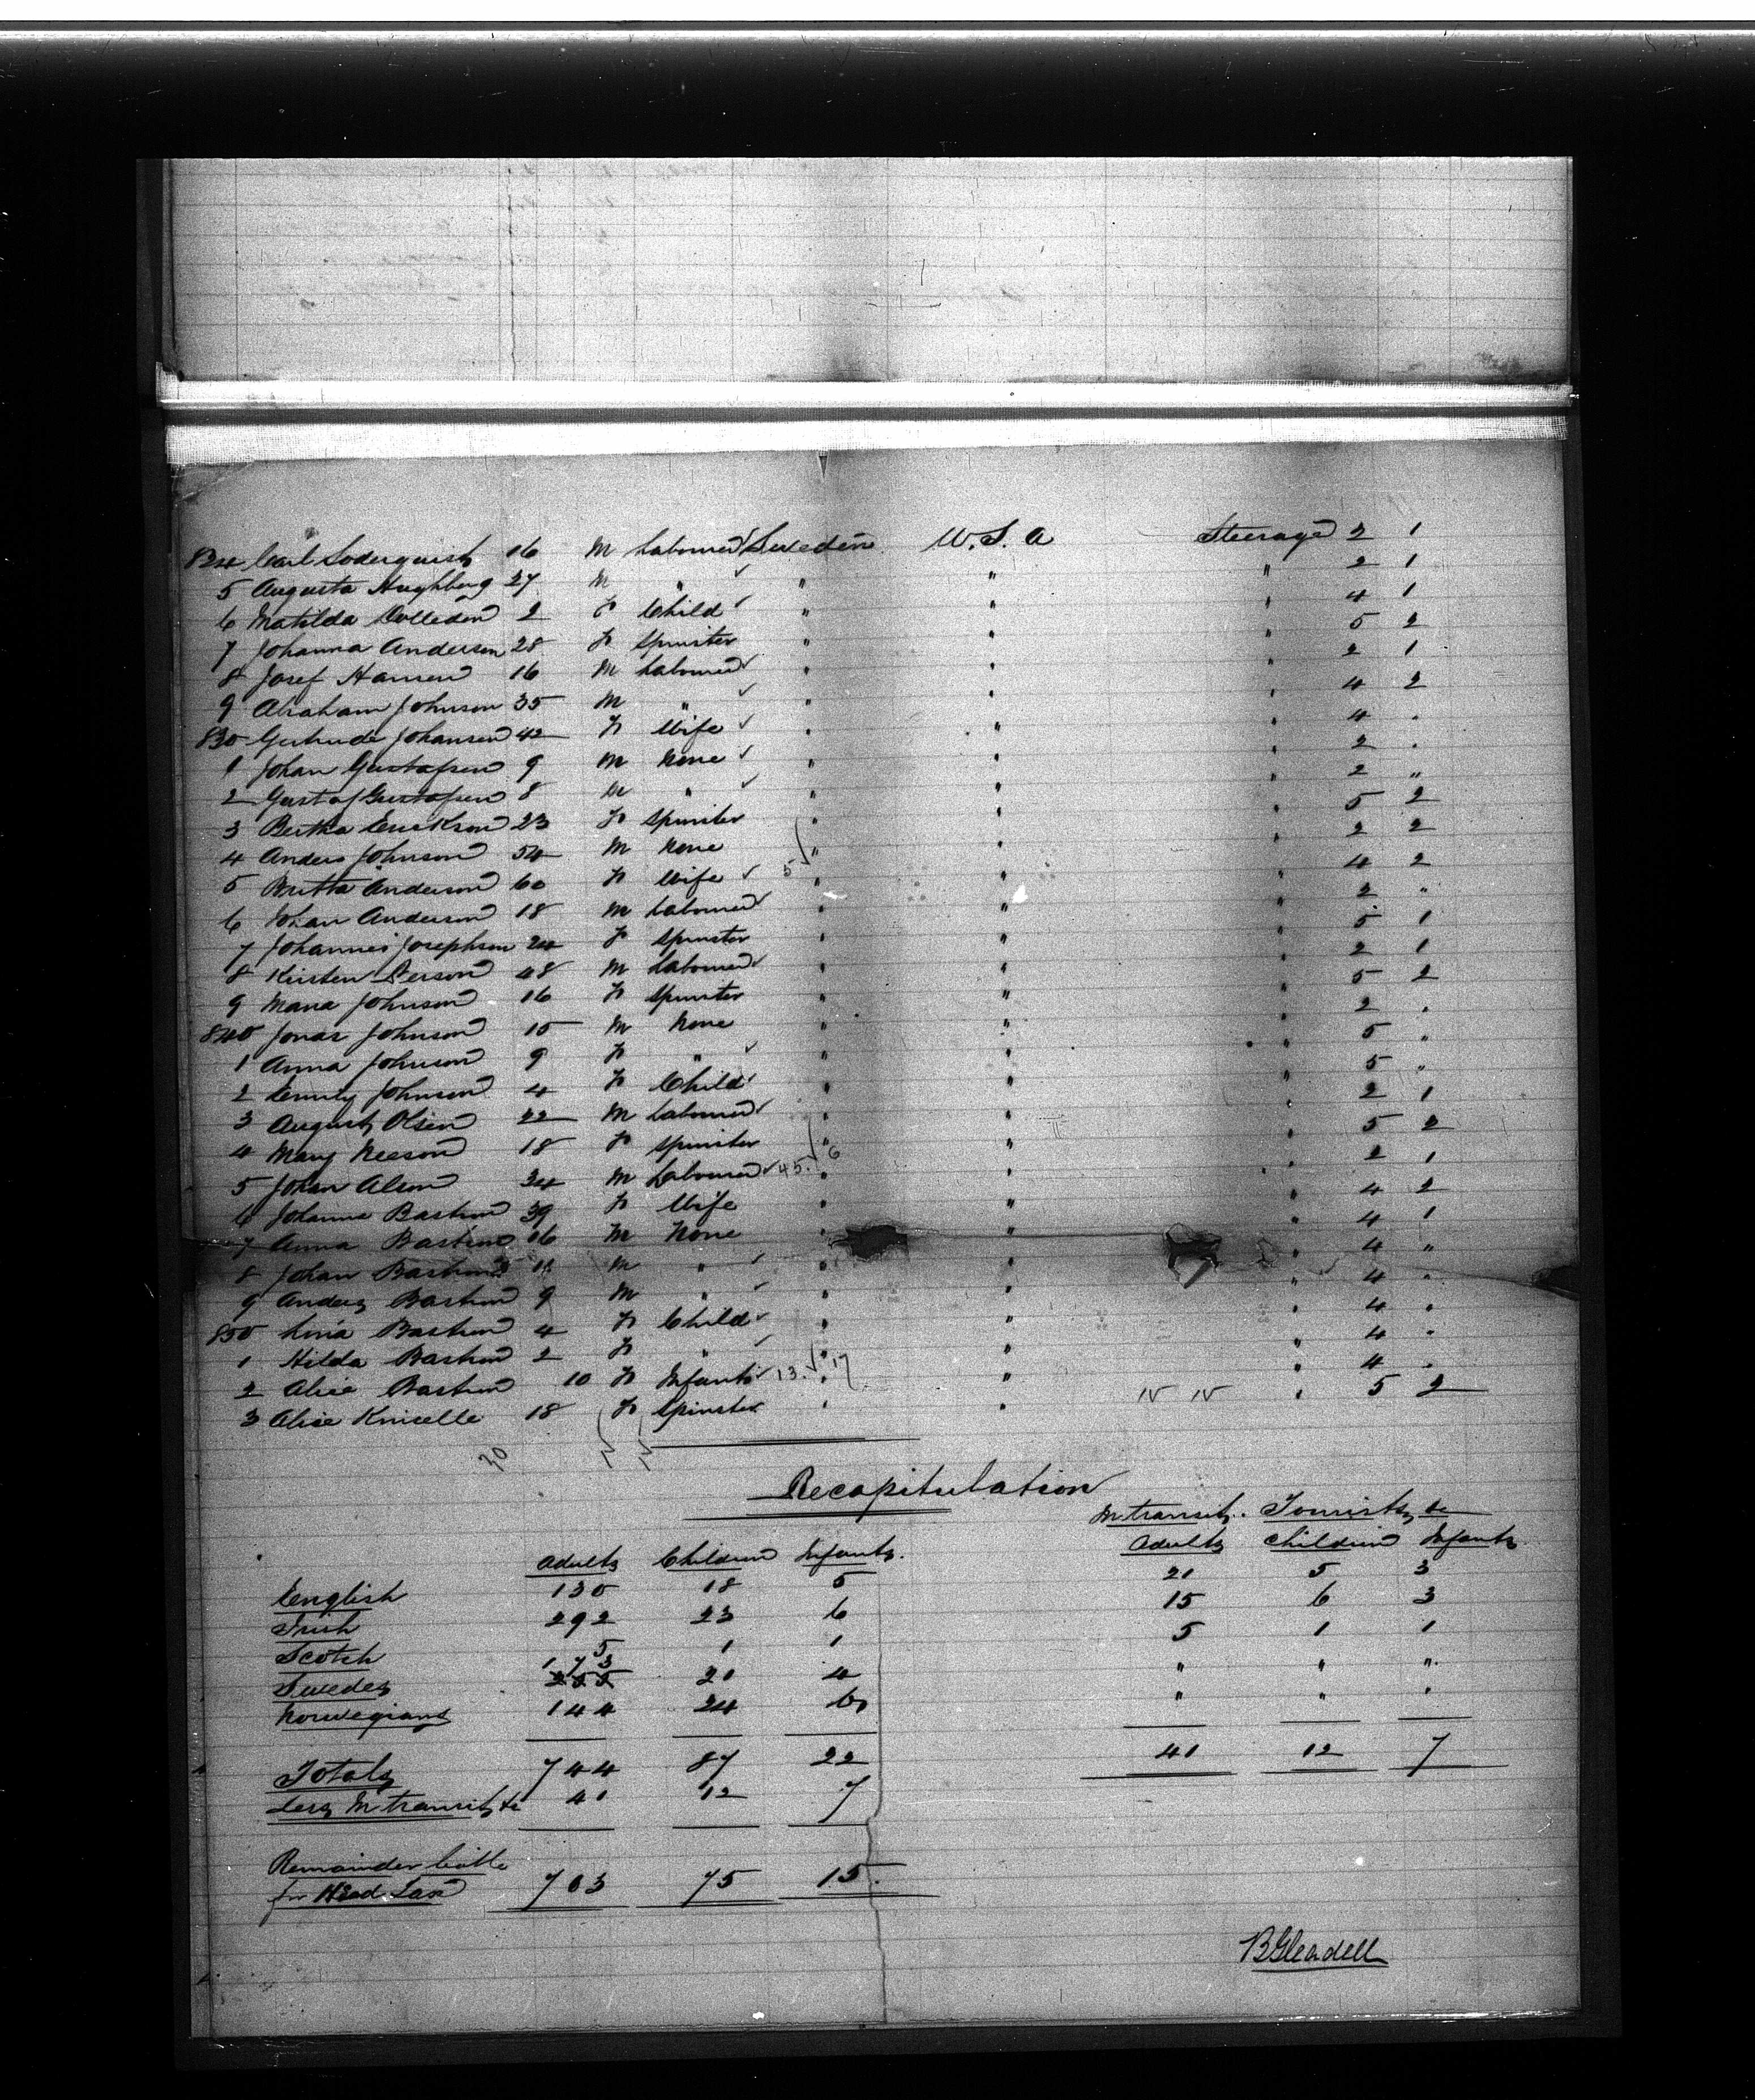 824 Carl Soderquist 16 M Labourer Sweden U.S.A Steerage 2 1
5 Augusta Hughberg 27 M " " " " 2 1
6 Matilda 2 F Child " " " 4 1
7 Johanna Anderson 28 F Spinster " " " 5 2
8 Josef Hansen 16 M Labourer " " " 2 1
9 Abraham Johnson 35 M " " " " 4 2
830 Gertrude Johansen 42 F Wife " " " 4 "
1 Johan Gustafsen 9 M None " " " 2 "
2 Gustaf Gustafsen 8 M " " " " 2 "
3 Bertha Erickson 23 F Spinster " " " 5 2
4 Anders Johnson 54 M None " " " 2 2
5 Britta Anderson 60 F Wife 5 " " " 4 2
6 Johan Anderson 18 M Labourer " " " 2 "
7 Johannes Josephson 24 F Spinster " " " 5 1
8 Kirsten Person 48 M Labourer " " " 2 1
9 Maria Johnson 16 F Spinster " " " 5 2
840 Jonas Johnson 15 M None " " " 2 "
1 Anna Johnson 9 F " " " " 5 "
2 Emily Johnson 4 F Child " " " 5 "
3 August Olsen 22 M Labourer " " " 2 1
4 Mary Neeson 18 F Spinster " " " 5 2
5 Johan Alson 34 M Labourer 45 6 " " " 2 1
6 Johanna Bastrom 39 F Wife " " " 4 2
7 Anna Bastrom 16 M None " " " 4 1
8 Johan Bastrom 11 M " " " " 4 "
9 Anders Bastrom 9 M " " " " 4 "
850 Lina Bastrom 4 F Child " " " 4 "
1 Hilda Bastrom 2 F " " " " 4 "
2 Alice Bastrom 10 F Infant 13 17 " " " 4 "
3 Alice Kniselle 18 F Spinster " " " 5 2
30
Recapitulation
In transit. Tourists &c
Adults Children Infants. Adults Children Infants
English 130 18 5 21 5 3
Irish 292 23 6 15 6 3
Scotch 5 1 1 5 1 1
Swedes 173 21 4 " " "
Norwegians 144 24 6 " " "
Totals 744 87 22 41 12 7
Less In transit &c 41 12 7
Remainder
for Head Tax 703 75 15.
BGleadell